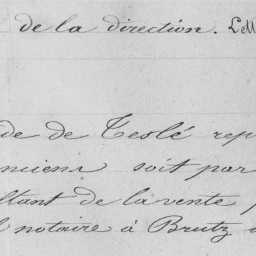 de la direction. Lett
de de Teslé rep
nciens soit par
ltant de la vente
l notaire à Brutz